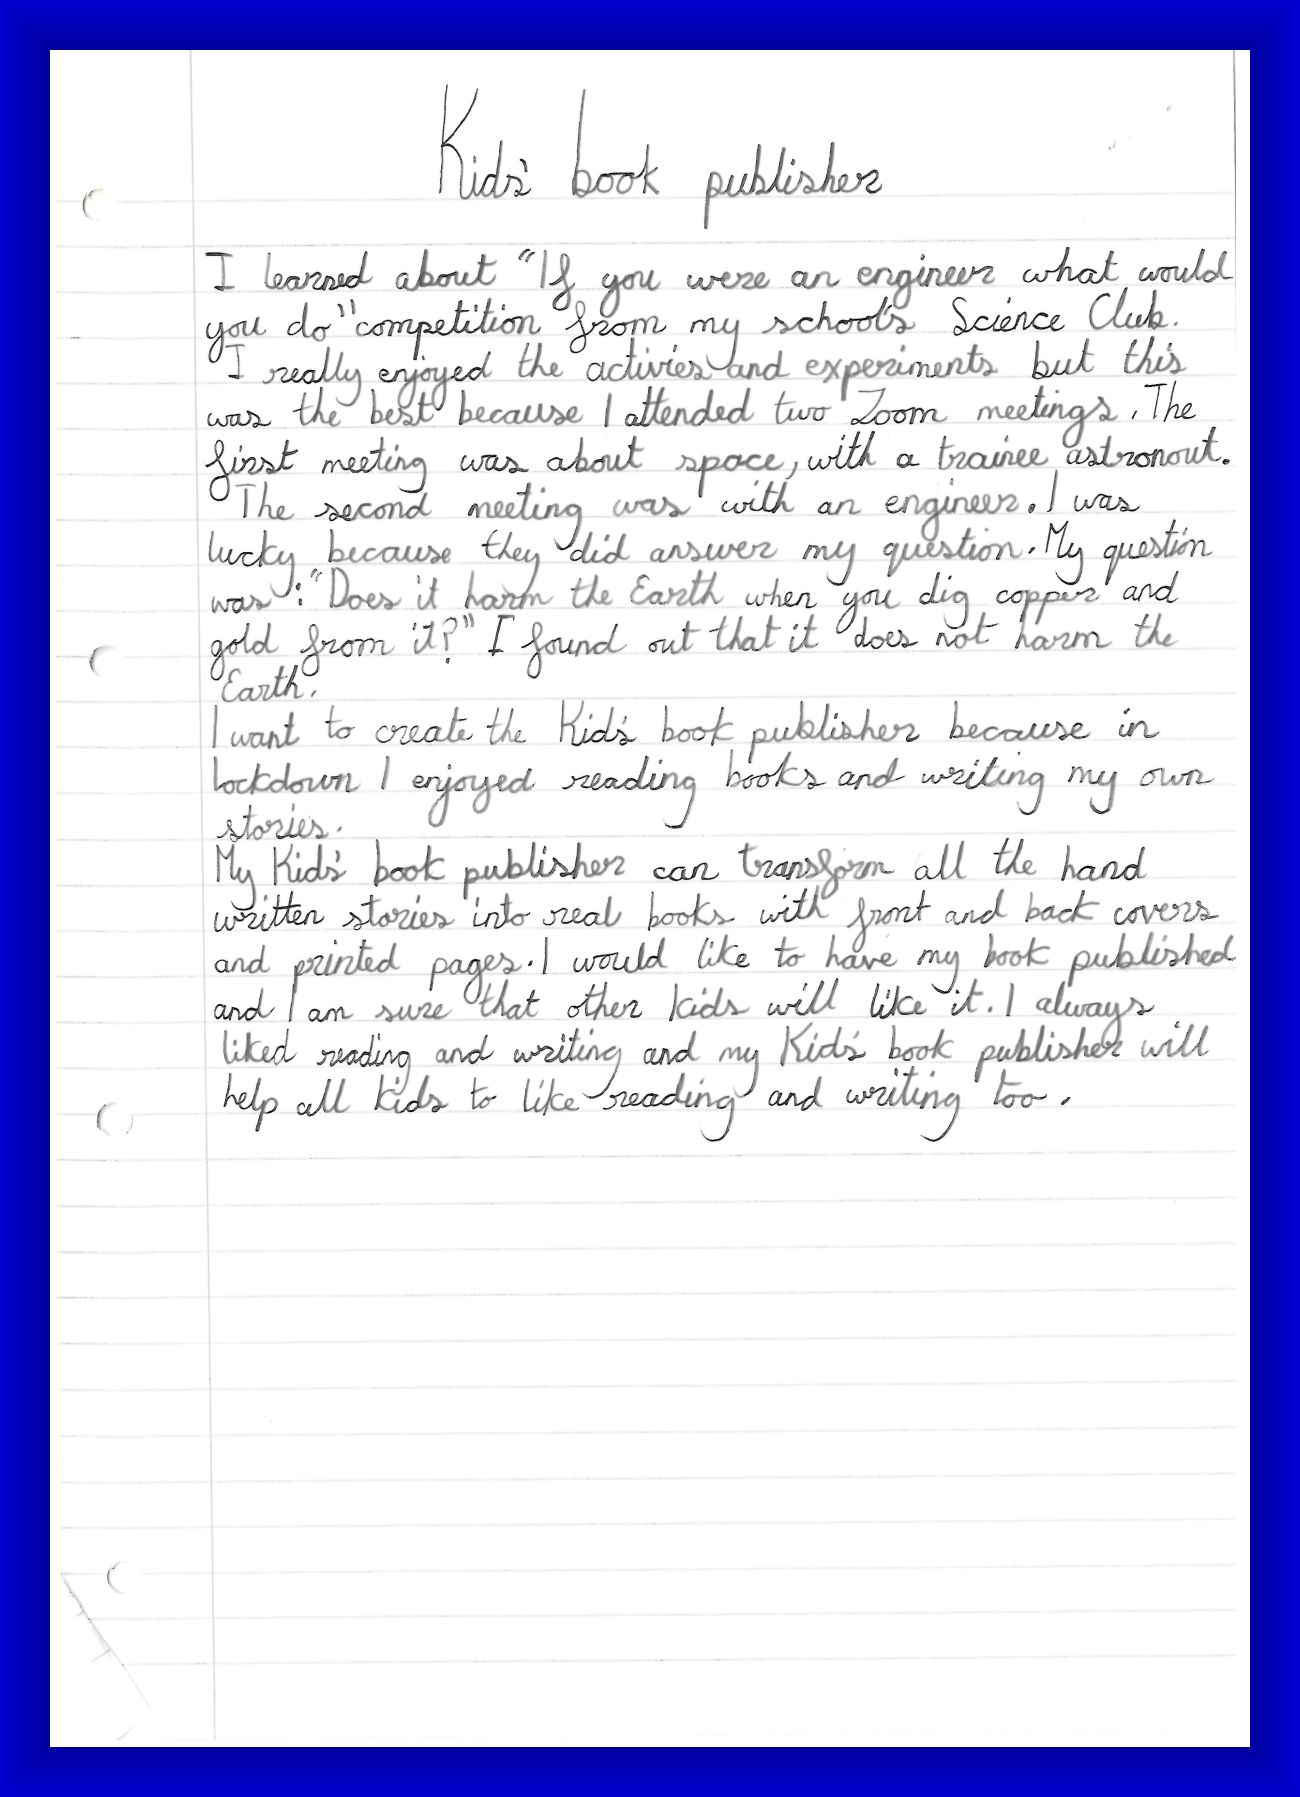 Kids' book publisher
I learned about "If you were an engineer what would
you do" competition from my school's Science Club.
I really enjoyed the activies and experiments but this
was the best because I attended two Zoom meetings. The
first meeting was about space, with a trainee astronout.
The second meeting was with an engineer. I was
lucky because they did answer my question. My question
was: "Does it harm the Earth when you dig copper and
gold from it?" I found out that it does not harm the
Earth.
I want to create the Kid's book publisher because in
lockdown I enjoyed reading books and writing my own
stories.
My Kids' book publisher can transform all the hand
written stories into real books with front and back covers
and printed pages. I would like to have my book published
and I am sure that other kids will like it. I always
liked reading and writing and my Kid's book publisher will
help all kids to like reading and writing too.